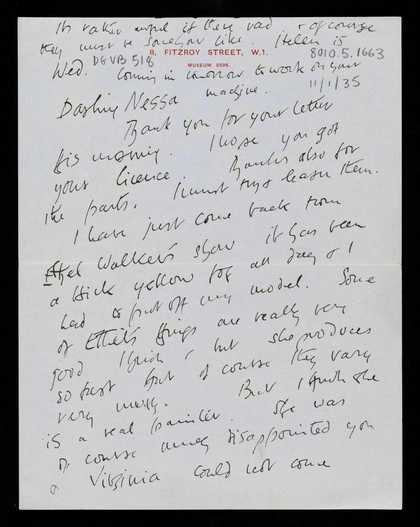 It's rather awful if they read & of course
they must be somehow like. Helen is
8, FITZROY STREET, W.1.
MUSEUM 0596.
Wed. DGVB 518 8010.5.1663
coming in tomorrow to work on your
machine. 11/1/35
Darling Nessa
Thank you for your letter
this morning. I hope you got
your licence. Thanks also for
the parts. I must try & learn them.
I have just come back from
Ethel Walker's show it has been
a thick yellow fog all day & I
had to put off my model. Some
of Ethel's things are really very
good I think, but she produces
so fast that of course they vary
very much. But I think she
is a real painter. She was
of course much disappointed you
& Virginia could not come